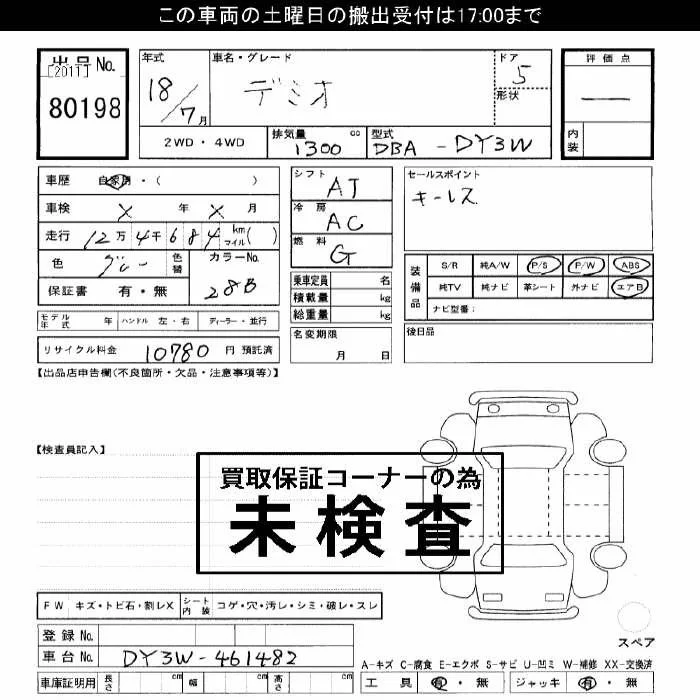 この車両の土曜日の搬出受付は17:00まで
出品No.
[2011]
80198
年式
18/7月
車名・グレード
デミオ
ドア
5
形状
評価点
—
内装
2WD・4WD
排気量
1300 cc
型式
DBA-DY3W
車歴 自家用・( )
車検 X 年 X 月
走行 12万4千684 km マイル( )
色 グレー 色替 カラーNo. 28B
保証書 有・無
シフト AT
冷房 AC
燃料 G
乗車定員 名
積載量 kg
総重量 kg
セールスポイント
キーレス
装備品
S/R 純A/W P/S P/W ABS
純TV 純ナビ 革シート 外ナビ エアB
ナビ型番:
モデル年式 年 ハンドル 左・右 ディーラー・並行
名変期限 月 日
後日品
リサイクル料金 10780 円 預託済
【出品店申告欄(不良箇所・欠品・注意事項等)】
【検査員記入】
買取保証コーナーの為
未検査
FW キズ・トビ石・割レX シート内装 コゲ・穴・汚レ・シミ・破レ・スレ
スペア
登録No.
車台No. DY3W-461482
車庫証明用 長さ cm 幅 cm 高さ cm
A-キズ C-腐食 E-エクボ S-サビ U-凹ミ W-補修 XX-交換済
工具 有・無 ジャッキ 有・無